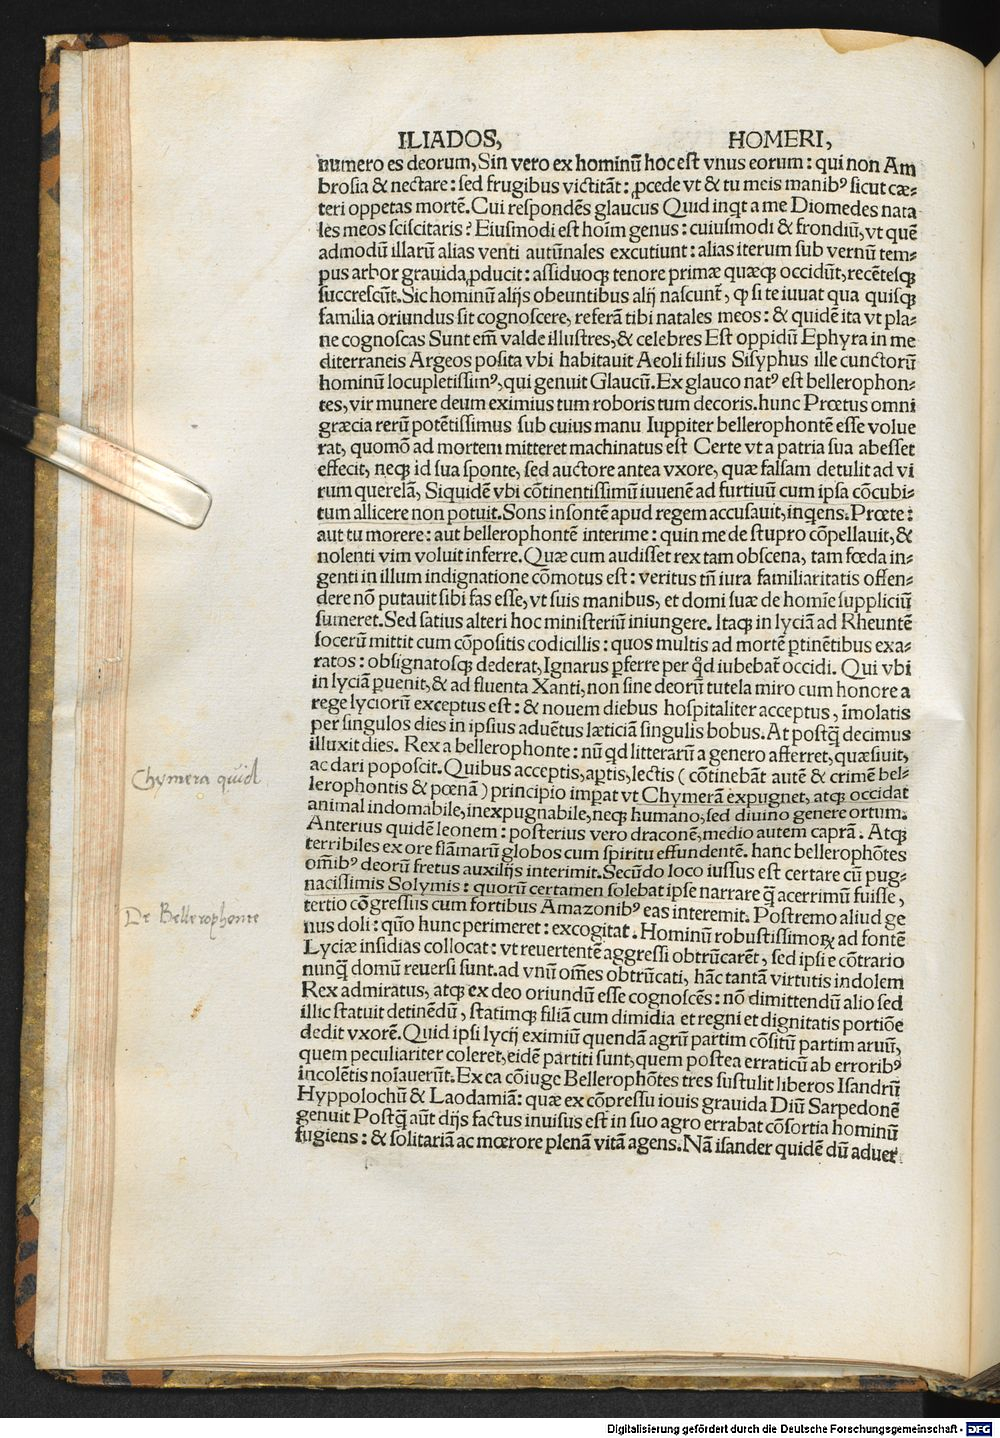 ILIADOS, HOMERI,
numero es deorum, Sin vero ex hominū hoc est vnus eorum: qui non Am
brosia & nectare: sed frugibus victitāt: ꝓcede vt & tu meis manibꝰ sicut cæ⸗
teri oppetas mortē. Cui respondēs glaucus Quid inqt a me Diomedes nata
les meos sciscitaris? Eiusmodi est hoīm genus: cuiusmodi & frondiū, vt quē
admodū illarū alias venti autūnales excutiunt: alias iterum sub vernū tem⸗
pus arbor grauida ꝓducit: assiduoqꝫ tenore primæ quæqꝫ occidūt, recētesqꝫ
succrescūt. Sic hominū alijs obeuntibus alij nascunt᷑, ꝙ si te iuuat qua quisqꝫ
familia oriundus sit cognoscere, referā tibi natales meos: & quidē ita vt pla⸗
ne cognoscas Sunt em̄ valde illustres, & celebres Est oppidū Ephyra in me
diterraneis Argeos posita vbi habitauit Aeoli filius Sisyphus ille cunctorū
hominū locupletissimꝰ, qui genuit Glaucū. Ex glauco natꝰ est bellerophon⸗
tes, vir munere deum eximius tum roboris tum decoris. hunc Prœtus omni
græcia rerū potētissimus sub cuius manu Iuppiter bellerophontē esse volue
rat, quomō ad mortem mitteret machinatus est Certe vt a patria sua abesset
effecit, neqꝫ id sua sponte, sed auctore antea vxore, quæ falsam detulit ad vi
rum querelā, Siquidē vbi cōtinentissimū iuuenē ad furtiuū cum ipsa cōcubi⸗
tum allicere non potuit. Sons insontē apud regem accusauit, inqens. Prœte:
aut tu morere: aut bellerophontē interime: quin me de stupro cōpellauit, &
nolenti vim voluit inferre. Quæ cum audisset rex tam obscena, tam fœda in⸗
genti in illum indignatione cōmotus est: veritus tn̄ iura familiaritatis offen⸗
dere nō putauit sibi fas esse, vt suis manibus, et domi suæ de homīe suppliciū
sumeret. Sed satius alteri hoc ministeriū iniungere. Itaqꝫ in lyciā ad Rheuntē
socerū mittit cum cōpositis codicillis: quos multis ad mortē ꝑtinētibus exa⸗
ratos: obsignatosqꝫ dederat, Ignarus ꝑferre per qd̄ iubebat᷑ occidi. Qui vbi
in lyciā ꝑuenit, & ad fluenta Xanti, non sine deorū tutela miro cum honore a
rege lyciorū exceptus est: & nouem diebus hospitaliter acceptus, īmolatis
per singulos dies in ipsius aduētus læticiā singulis bobus. At postq̄ decimus
illuxit dies. Rex a bellerophonte: nū qd litterarū a genero afferret, quæsiuit,
ac dari poposcit. Quibus acceptis, aꝑtis, lectis ( cōtinebāt autē & crimē bel⸗
lerophontis & pœnā ) principio imꝑat vt Chymerā expugnet, atqꝫ occidat
animal indomabile, inexpugnabile, neqꝫ humano, sed diuino genere ortum.
Anterius quidē leonem: posterius vero draconē, medio autem caprā. Atqꝫ
terribiles ex ore flāmarū globos cum spiritu effundentē. hanc bellerophōtes
om̄ibꝰ deorū fretus auxilijs interimit. Secūdo loco iussus est certare cū pug⸗
nacissimis Solymis: quorū certamen solebat ipse narrare q̄ acerrimū fuisse,
tertio cōgressus cum fortibus Amazonibꝰ eas interemit. Postremo aliud ge
nus doli: quo hunc perimeret: excogitat. Hominū robustissimoꝝ ad fontē
Lyciæ insidias collocat: vt reuertentē aggressi obtrūcarēt, sed ipsi e cōtrario
nunq̄ domū reuersi sunt. ad vnū om̄es obtrūcati, hāc tantā virtutis indolem
Rex admiratus, atqꝫ ex deo oriundū esse cognoscēs: nō dimittendū alio sed
illic statuit detinēdū, statimqꝫ filiā cum dimidia et regni et dignitatis portiōe
dedit vxorē. Quid ipsi lycij eximiū quendā agrū partim cōsitū partim aruū,
quem peculiariter coleret, eidē partiti sunt, quem postea erraticū ab erroribꝰ
incolētis noīauerūt. Ex ea cōiuge Bellerophōtes tres sustulit liberos Isandrū
Hyppolochū & Laodamiā: quæ ex cōpressu iouis grauida Diū Sarpedonē
genuit Postq̄ aūt dijs factus inuisus est in suo agro errabat cōsortia hominū
fugiens: & solitariā ac mœrore plenā vitā agens. Nā isander quidē dū aduer
Chymera quid
De Bellerophonte
Digitalisierung gefördert durch die Deutsche Forschungsgemeinschaft - DFG